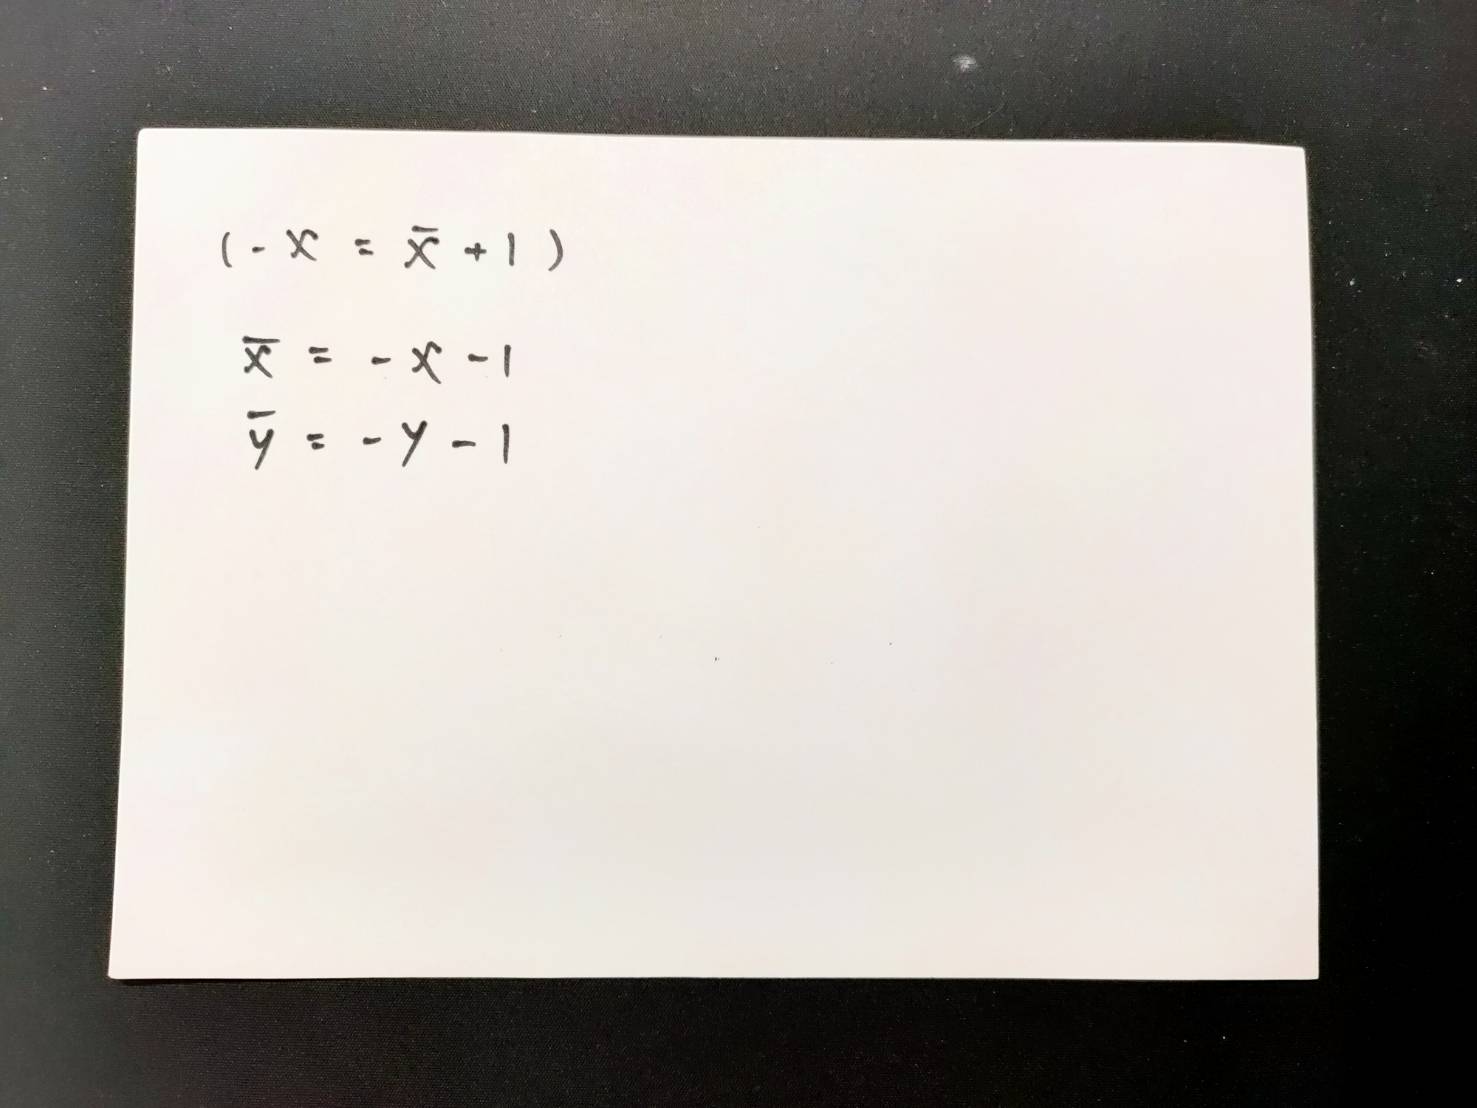 (-x = x̄ + 1)
x̄ = -x - 1
ȳ = -y - 1